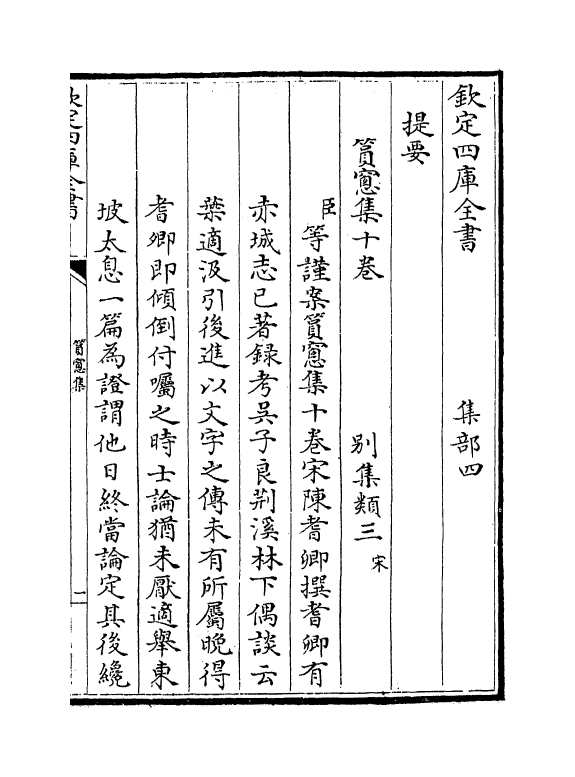 欽定四庫全書　集部四
提要
篔窻集十卷　別集類三宋
臣等謹案篔窻集十卷宋陳耆卿撰耆卿有
赤城志已著録考吳子良荆溪林下偶談云
葉適汲引後進以文字之傳未有所屬晚得
耆卿即傾倒付囑之時士論猶未厭適舉東
坡太息一篇為證謂他日終當論定其後纔
欽定四庫全書
篔窻集